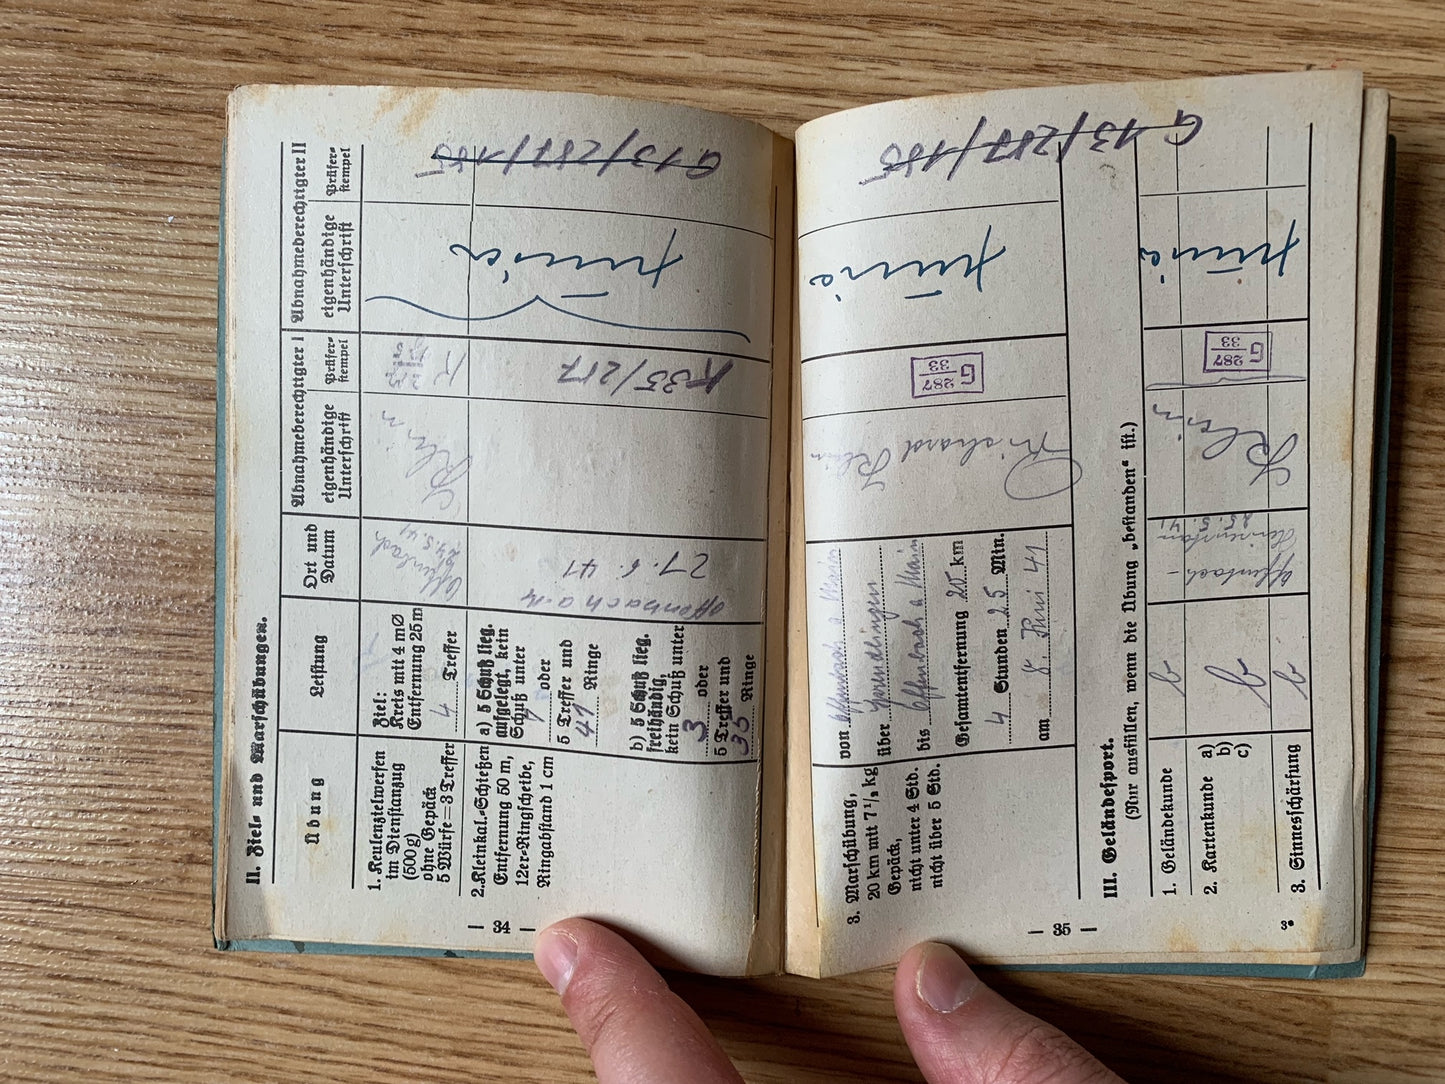 II. Ziel- und Marschübungen.
Übung
Leistung
Ort und
Datum
Abnahmeberechtigter I
eigenhändige
Unterschrift
Prüfer-
stempel
Abnahmeberechtigter II
eigenhändige
Unterschrift
Prüfer-
stempel
1. Keulenzielwerfen
im Dienstanzug
(500 g)
ohne Gepäck
5 Würfe = 3 Treffer
Ziel:
Kreis mit 4 m Ø
Entfernung 25 m
4 Treffer
Offenbach
24.5.41
Klein
2. Kleinkal.-Schießen
Entfernung 50 m,
12er-Ringscheibe,
Ringabstand 1 cm
a) 5 Schuß lieg.
aufgelegt, kein
Schuß unter
oder
5 Treffer und
49 Ringe
b) 5 Schuß lieg.
freihändig,
kein Schuß unter
3 oder
5 Treffer und
35 Ringe
Offenbach a. M
K 35/287
G 13/287/185
— 34 —
3. Marschübung,
20 km mit 7½ kg
Gepäck,
nicht unter 4 Std.
nicht über 5 Std.
von Offenbach a Main
über
bis Offenbach a Main
Gesamtentfernung 20 km
4 Stunden 25 Min.
am 8. Juni 41
Richard Klein
G 287
33
G 13/287/185
III. Geländesport.
(Nur ausfüllen, wenn die Übung „bestanden“ ist.)
1. Geländekunde
2. Kartenkunde a)
b)
c)
3. Sinnesschärfung
Offenbach-
25.5.41
Klein
G 287
33
— 35 —
3*